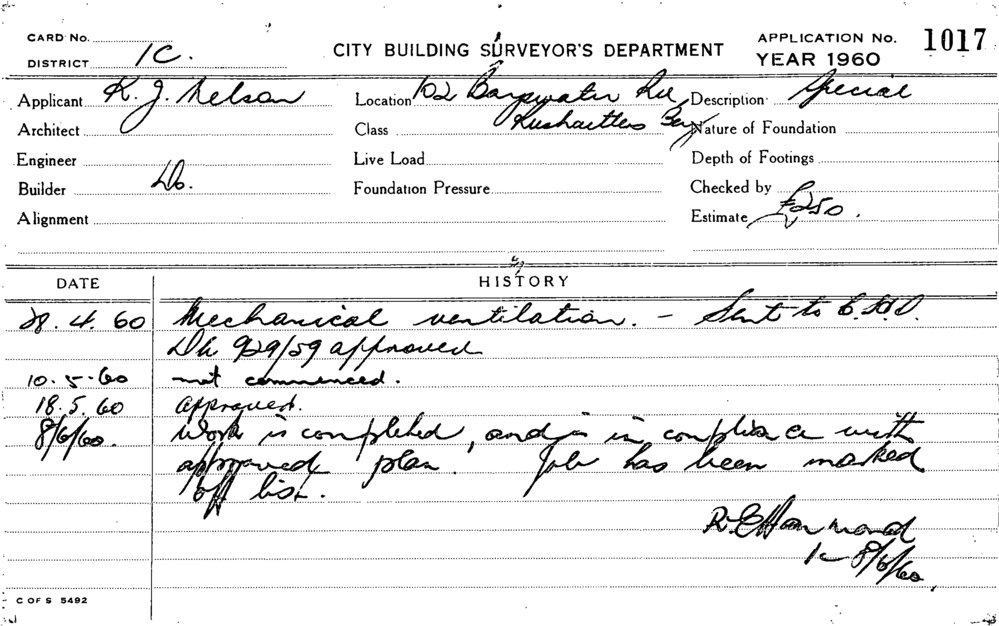 CARD No.
DISTRICT 1C.
CITY BUILDING SURVEYOR'S DEPARTMENT
APPLICATION No. 1017
YEAR 1960
Applicant K. J. Nelson
Location 102 Bayswater Rd
Description Special
Architect
Class Rushcutters Bay
Nature of Foundation
Engineer
Live Load
Depth of Footings
Builder Do.
Foundation Pressure
Checked by
Alignment
Estimate £250.
DATE HISTORY
28. 4. 60 Mechanical ventilation. - Sent to C.H.O.
DA 929/59 approved
10.5.60 not commenced.
18.5.60 approved.
8/6/60. Work is completed, and is in compliance with
approved plan. Job has been marked
off list.
R. E. Hammond
1c 8/6/60.
C OF S 5492